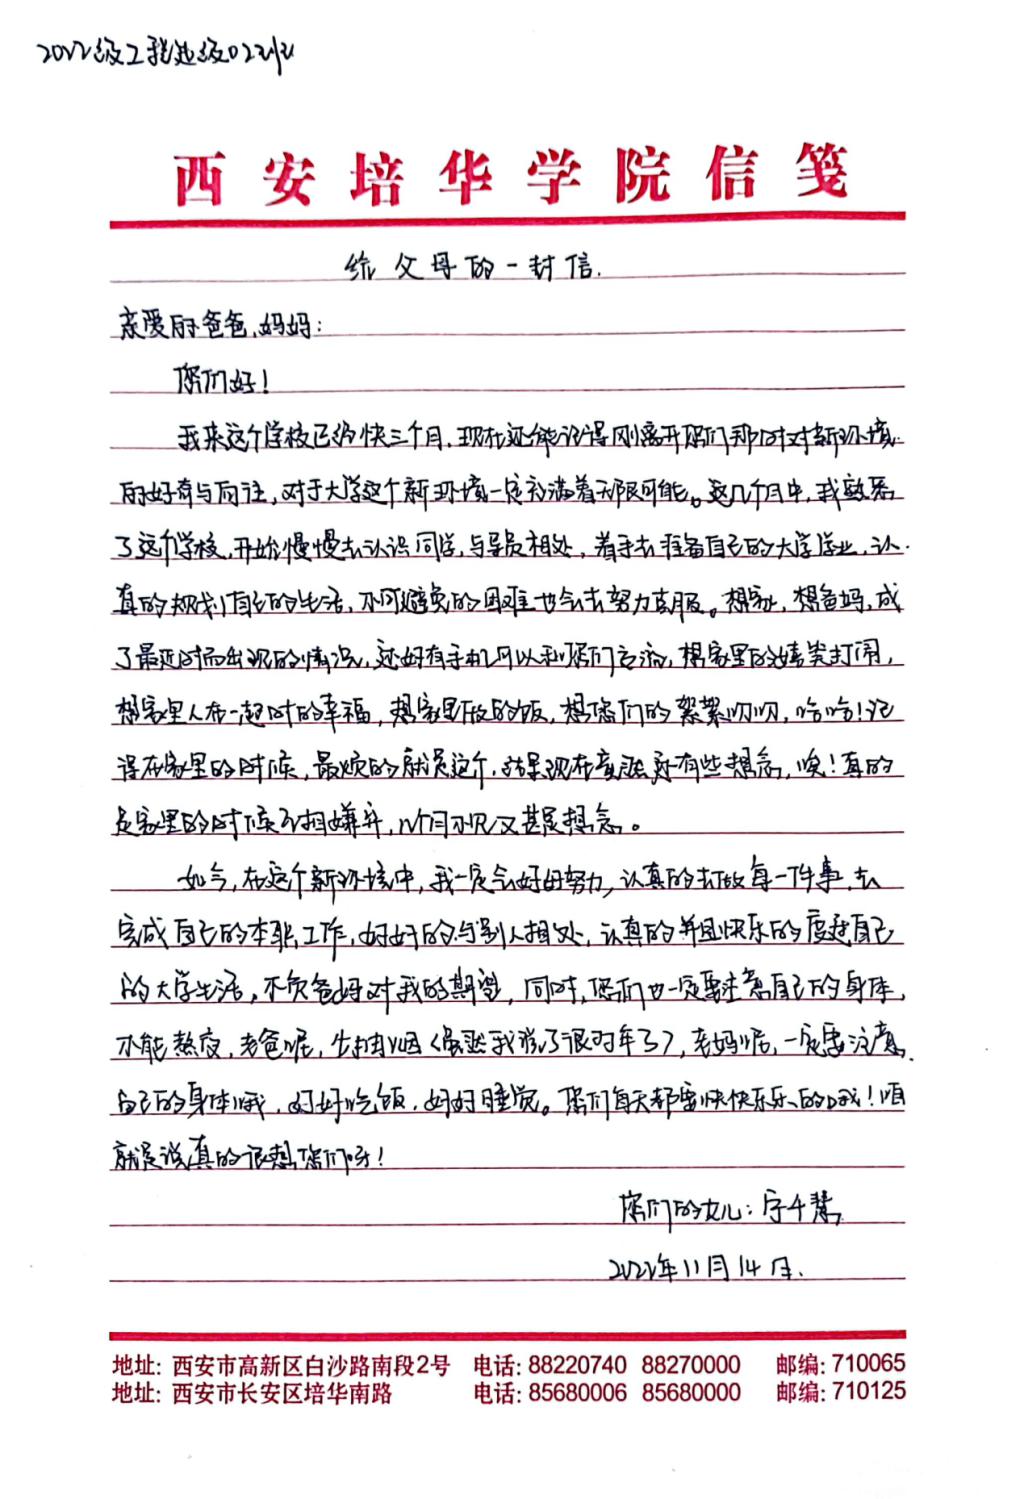 2022级工程造价02班
西安培华学院信笺
给父母的一封信.
亲爱的爸爸,妈妈:
您们好!
我来这个学校已经快三个月,现在还能记得刚离开您们那时对新环境
的好奇与向往,对于大学这个新环境一定充满着无限可能。这几个月中,我熟悉
了这个学校,开始慢慢去认识同学,与导员相处,着手去准备自己的大学学业,认
真的规划自己的生活,不可避免的困难也会去努力克服。想家,想爸妈,成
了最近时而出现的情况,还好有手机可以和您们交流,想家里的嬉笑打闹,
想家里人在一起时的幸福,想家里做的饭,想您们的絮絮叨叨,哈哈!记
得在家里的时候,最烦的就是这个,结果现在竟然有些想念,唉!真的
是家里的时候互相嫌弃,几个月不见又甚是想念。
如今,在这个新环境中,我一定会好好努力,认真的去做每一件事,去
完成自己的本职工作,好好的与别人相处,认真的并且快乐的度过自己
的大学生活,不负爸妈对我的期望,同时,您们也一定要注意自己的身体,
不能熬夜,老爸呢,少抽烟(虽然我说了很多年了),老妈呢,一定要注意
自己的身体哦,好好吃饭,好好睡觉。您们每天都要快快乐乐的哦!咱
就是说真的很想您们呀!
您们的女儿:
2022年11月14日.
地址: 西安市高新区白沙路南段2号 电话: 88220740 88270000 邮编: 710065
地址: 西安市长安区培华南路 电话: 85680006 85680000 邮编: 710125